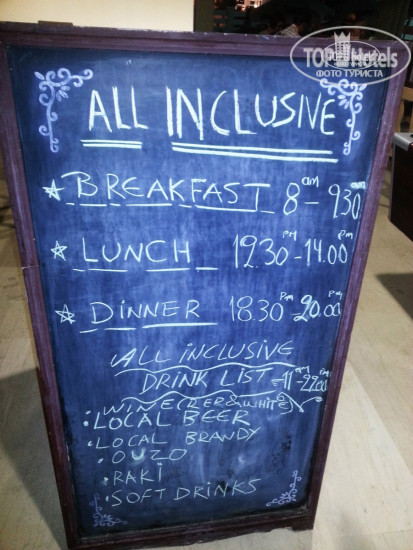 TOPHotels
ФОТО ТУРИСТА
ALL INCLUSIVE
BREAKFAST 8 am - 930 am
LUNCH 12.30 PM - 14.00 PM
DINNER 18.30 PM - 20.00 PM
ALL INCLUSIVE
DRINK LIST - 11 am - 22.00 PM
WINE (RED & WHITE)
• LOCAL BEER
• LOCAL BRANDY
• OUZO
• RAKI
• SOFT DRINKS